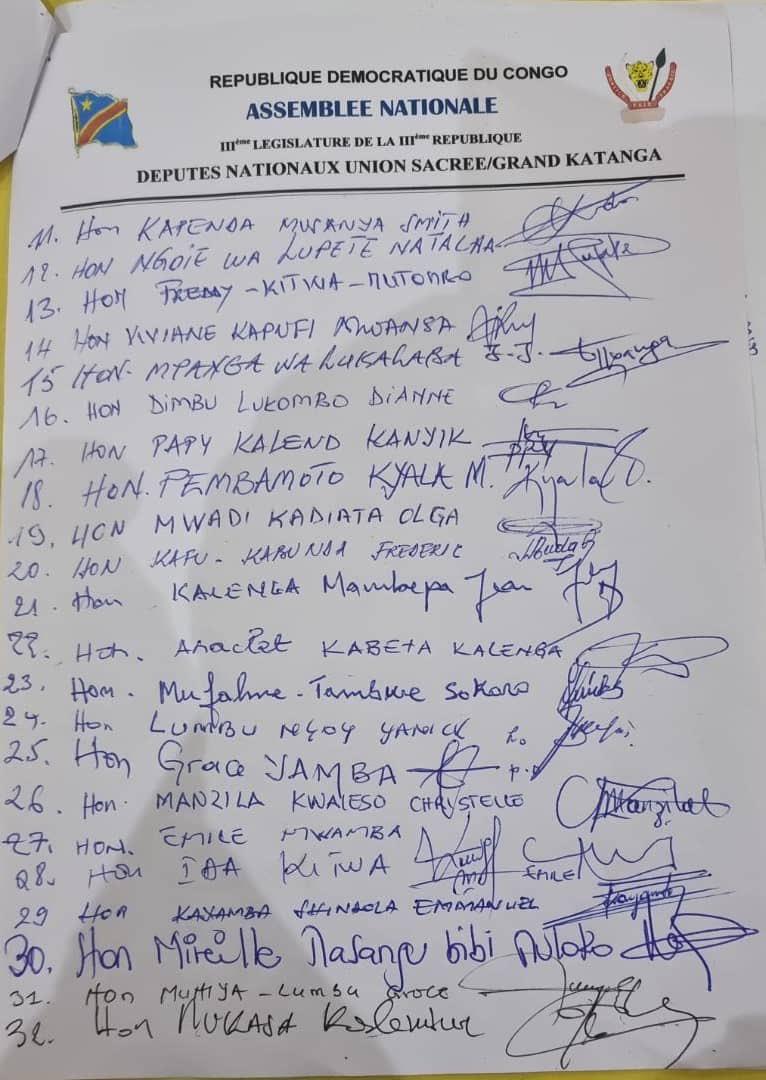 REPUBLIQUE DEMOCRATIQUE DU CONGO
ASSEMBLEE NATIONALE
IIIème LEGISLATURE DE LA IIIème REPUBLIQUE
DEPUTES NATIONAUX UNION SACREE/GRAND KATANGA
11. Hon KAPENDA MUSANYA SMITH
12. HON NGOIE WA LUPETE NATALHA
13. HON FREDDY-KITWA-MUTOMBO
14 HON VIVIANE KAPUFI MWANSA
15 HON. MPANGA WA LUKALABA J-J.
16. HON DIMBU LUKOMBO DIANNE
17. HON PAPY KALEND KANYIK
18. HON. PEMBAMOTO KYALA M.
19. HON MWADI KADIATA OLGA
20. HON KAFU-KABUNDA FREDERIC
21. Hon KALENGA Jean
22. Hon. Anaclet KABETA KALENGA
23. Hom. Tambwe Sokoro
24. Hon LUMBU NGOY YANICK
25. Hon Grace YAMBA
26. Hon. MANZILA KWALESO CHRYSTELLE
27. HON. EMILE MWAMBA EMILE
28. HON IDA KITWA
29 HON KAYAMBA SHINDOLA EMMANUEL
30. Hon Mireille Masangu bibi Muloko
31. Hon MUHIYA-Lumbu Grace
32. Hon MUKASA